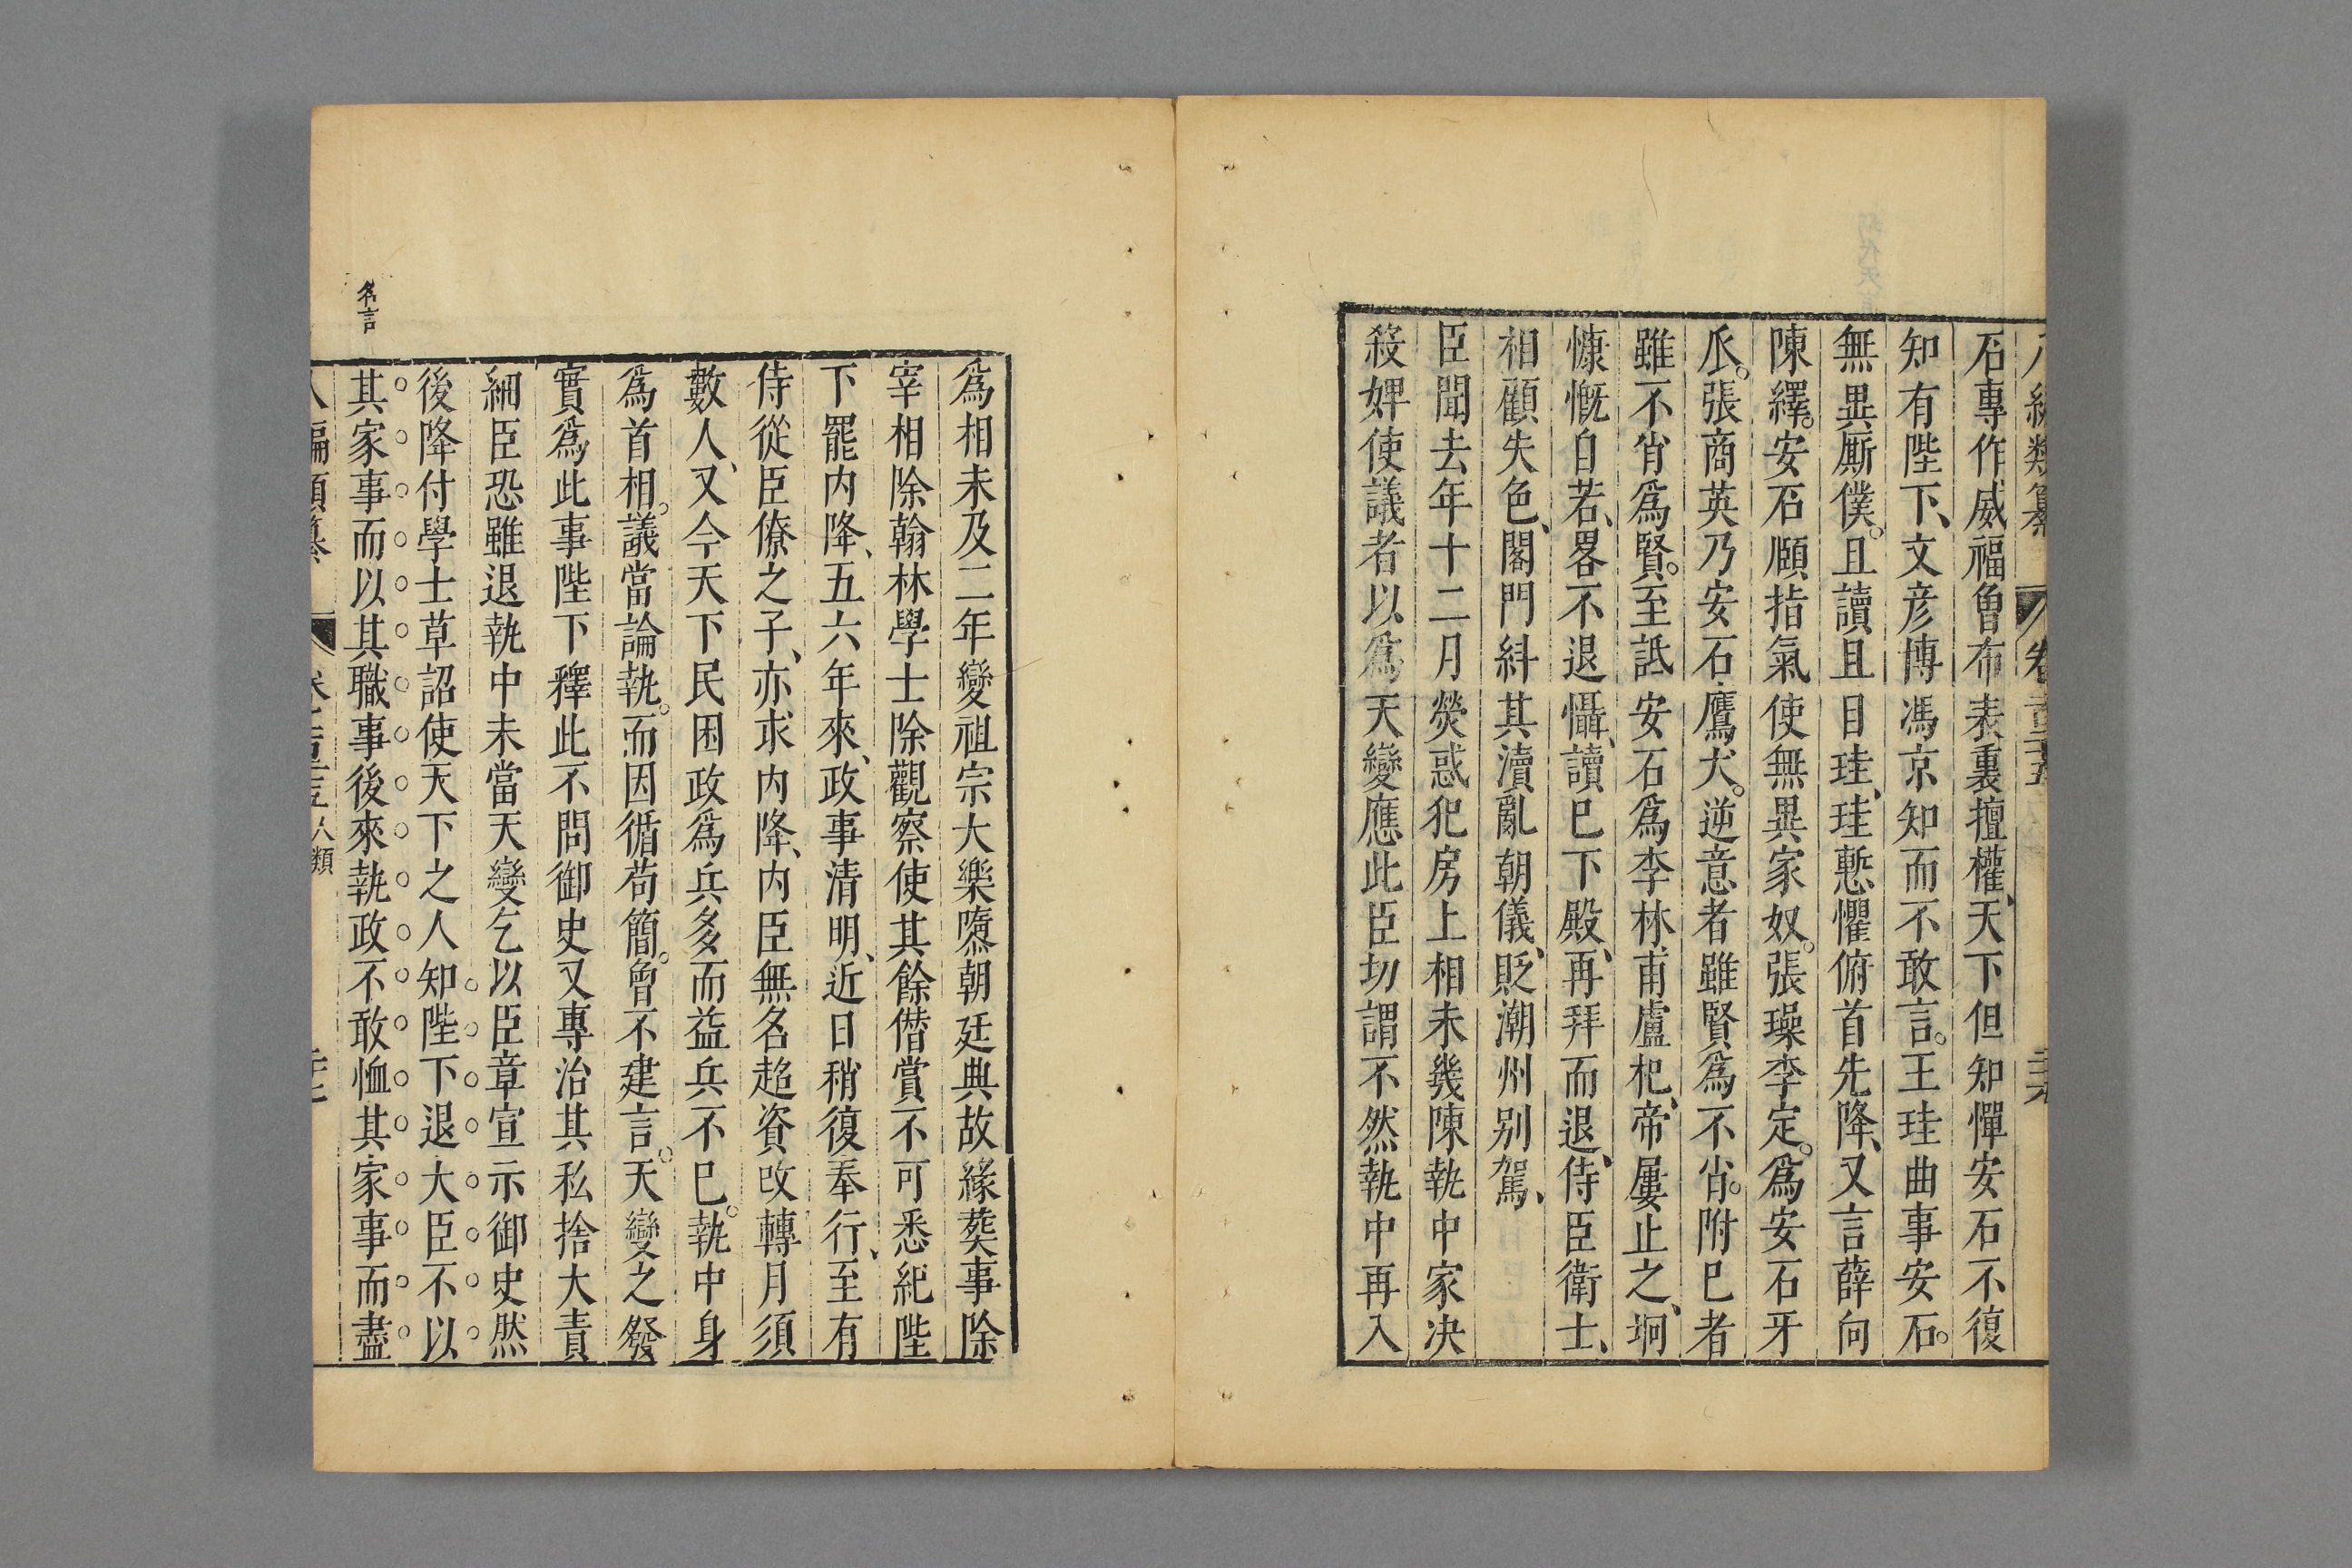 石專作威福曾布表裏擅權、天下但知憚安石不復
知有陛下、文彦博馮京知而不敢言。王珪曲事安石。
無異厮僕。且讀且目珪、珪慙懼俯首先降、又言薛向
陳繹。安石頤指氣使無異家奴。張璪李定。爲安石牙
爪。張商英乃安石鷹犬。逆意者雖賢爲不肖。附已者
雖不肖爲賢。至詆安石爲李林甫盧杞、帝屢止之、坰
慷慨自若、畧不退懾、讀巳下殿、再拜而退、侍臣衛士、
相顧失色、閤門糾其瀆亂朝儀、貶潮州别駕、
臣聞去年十二月熒惑犯房上相未幾陳執中家决
殺婢使議者以爲天變應此臣切謂不然執中再入
爲相未及二年變祖宗大樂隳朝廷典故緣葬事除
宰相除翰林學士除觀察使其餘僣賞不可悉紀陛
下罷内降、五六年來、政事清明、近日稍復奉行、至有
侍從臣僚之子、亦求内降、内臣無名超資改轉月須
數人、又今天下民困政爲兵多而益兵不巳。執中身
爲首相。議當論執。而因循苟簡。曾不建言。天變之發
實爲此事陛下釋此不問御史又專治其私捨大責
細臣恐雖退執中未當天變乞以臣章宣示御史然
後降付學士草詔使天下之人知陛下退大臣不以
其家事而以其職事後來執政不敢恤其家事而盡
名言